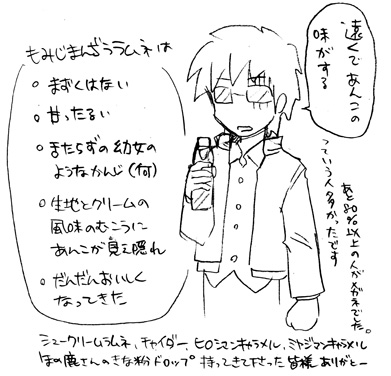 遠くであんこの
味がする
っていう人多かったです
あと80%以上の人がメガネでした。
もみじまんぢうラムネは
○まずくはない
○甘ったるい
○まだらずの幼女の
ようなかんじ(何)
○生地とクリームの
風味のむこうに
あんこが見え隠れ
○だんだんおいしく
なってきた
シュークリームラムネ、チャイダー、ヒロシマンキャラメル、ミヤジマンキャラメル
ほの鹿さんのきな粉ドロップ 持ってきて下さった皆様ありがとー